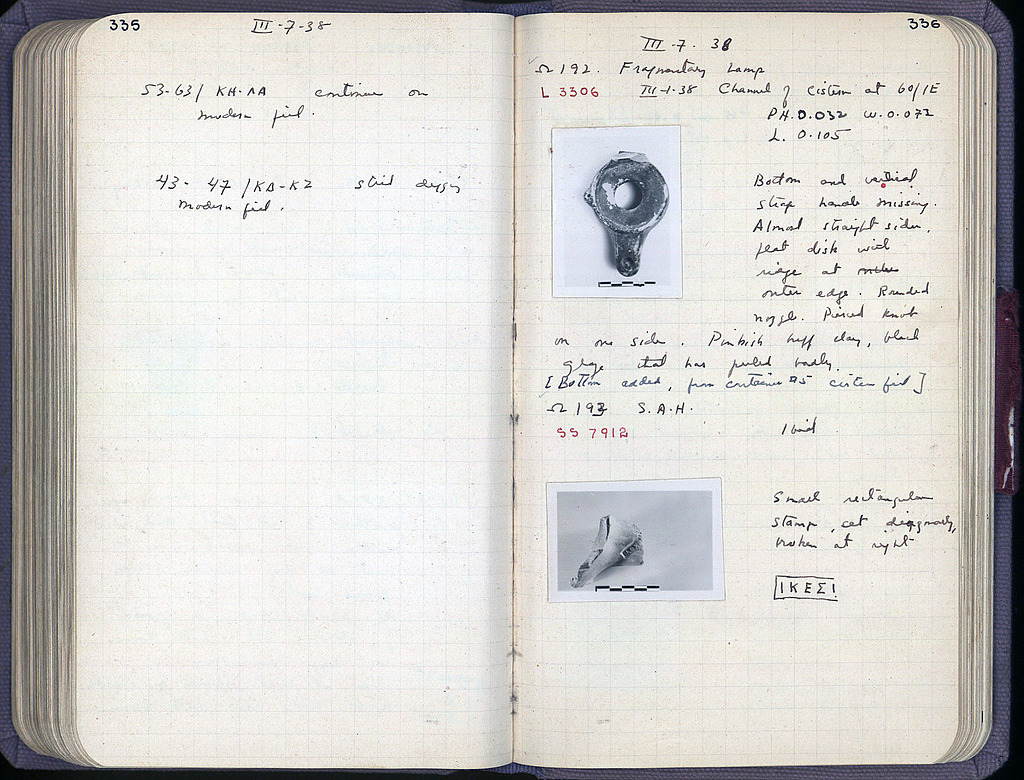 335
III-7-38
53-63/ KH-ΛΑ continue on
modern fill.
43-47/KΔ-KZ start digging
modern fill.
336
III-7. 38
Ω 192. Fragmentary Lamp
L 3306 III-1-38 Channel of cistern at 60/ΙΕ
PH. 0.032 W. 0.072
L. 0.105
Bottom and vertical
strap handle missing.
Almost straight sides,
flat disk with
ridge at
outer edge. Rounded
nozzle. Pierced knob
on one side. Pinkish buff clay, black
glaze that has peeled badly.
[Bottom added, from container #5 cistern fill]
Ω 193 S.A.H.
SS 7912 Ibid
Small rectangular
stamp, set diagonally,
broken at right
ΙΚΕΣΙ